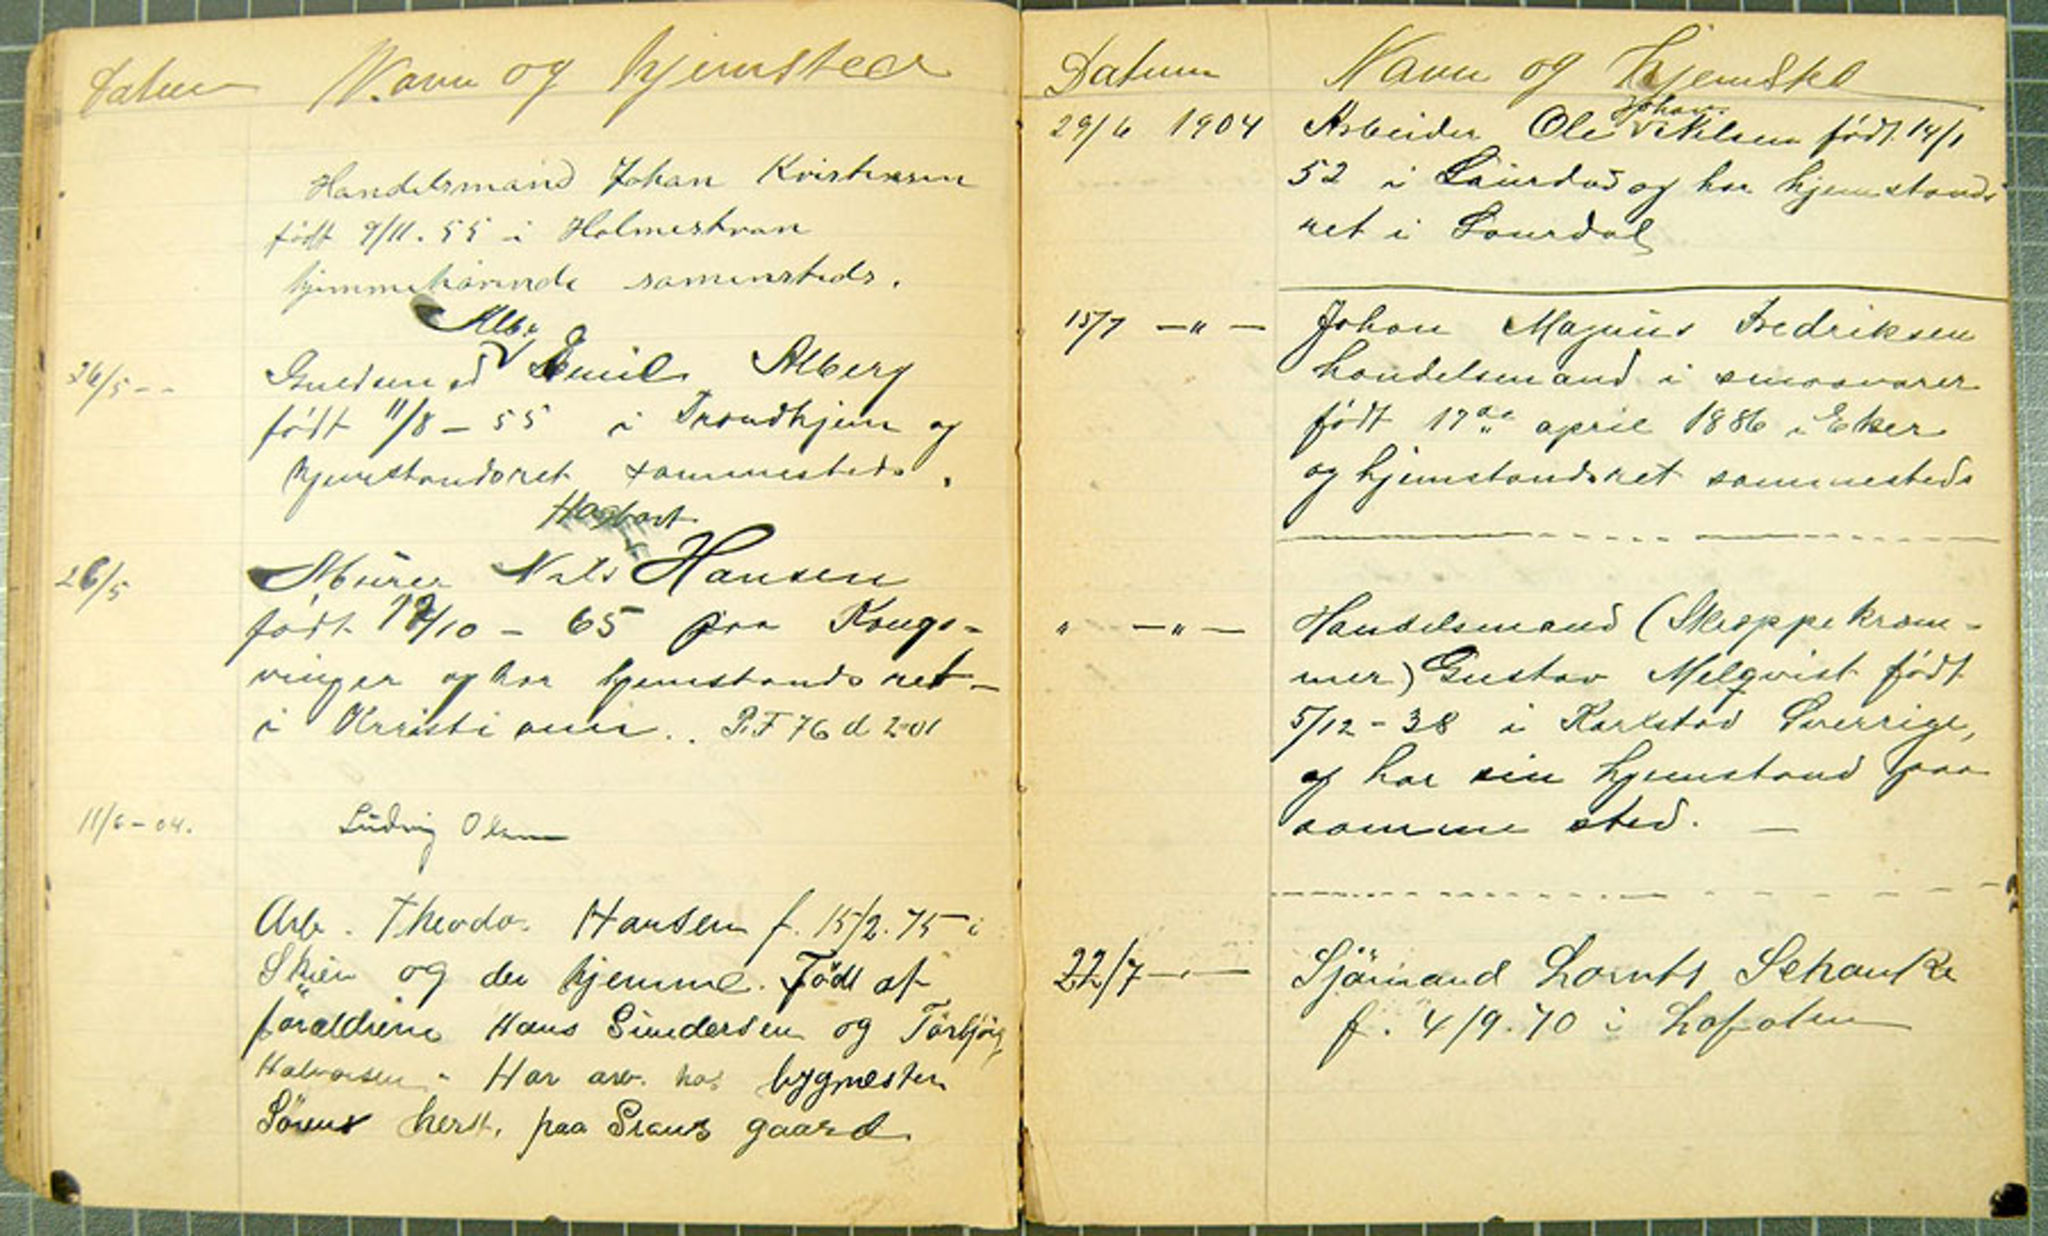 Datum Navn og hjemsted
Handelsmand Johan Kristensen
født 9/11. 55 i Holmestran
hjemmehørende samensteds.
Alb.
26/5 - - Guldsmed Emil Alberg
født 11/8 - 55 i Trondhjem og
hjemstandsret sammesteds.
Hagbart
26/5 Murer Nils Hansen
født 12/10 - 65 paa Kongs-
vinger og har hjemstandsret -
i Kristiania.. P.F 76 d 201
11/6 - 04. Ludvig Olsen
Arb. Theodor Hansen f. 15/2. 75 i
Skien og der hjemme. Født af
forældrene Hans Gundersen og Torbjörg
Halvorsen - Har arb. hos bygmester
Sörens herst. paa gaard
Datum Navn og Hjemsted
Johan
29/6 1904 Arbeider Ole Nilsen født 14/1
52 i Laurdal og har hjemstands
ret i Laurdal
15/7 —"— Johan Magnus Fredriksen
handelsmand i smaavarer
født 17de april 1886 i Eker
og hjemstandsret sammesteds
" —"— Handelsmand (Skreppekræm-
mer) Gustav Melqvist født
5/12 - 38 i Karlstad Sverrige,
og har sin hjemstand paa
samme sted. —
22/7 —"— Sjömand Lornts Schanke
f. 4/9. 70 i Lofoten